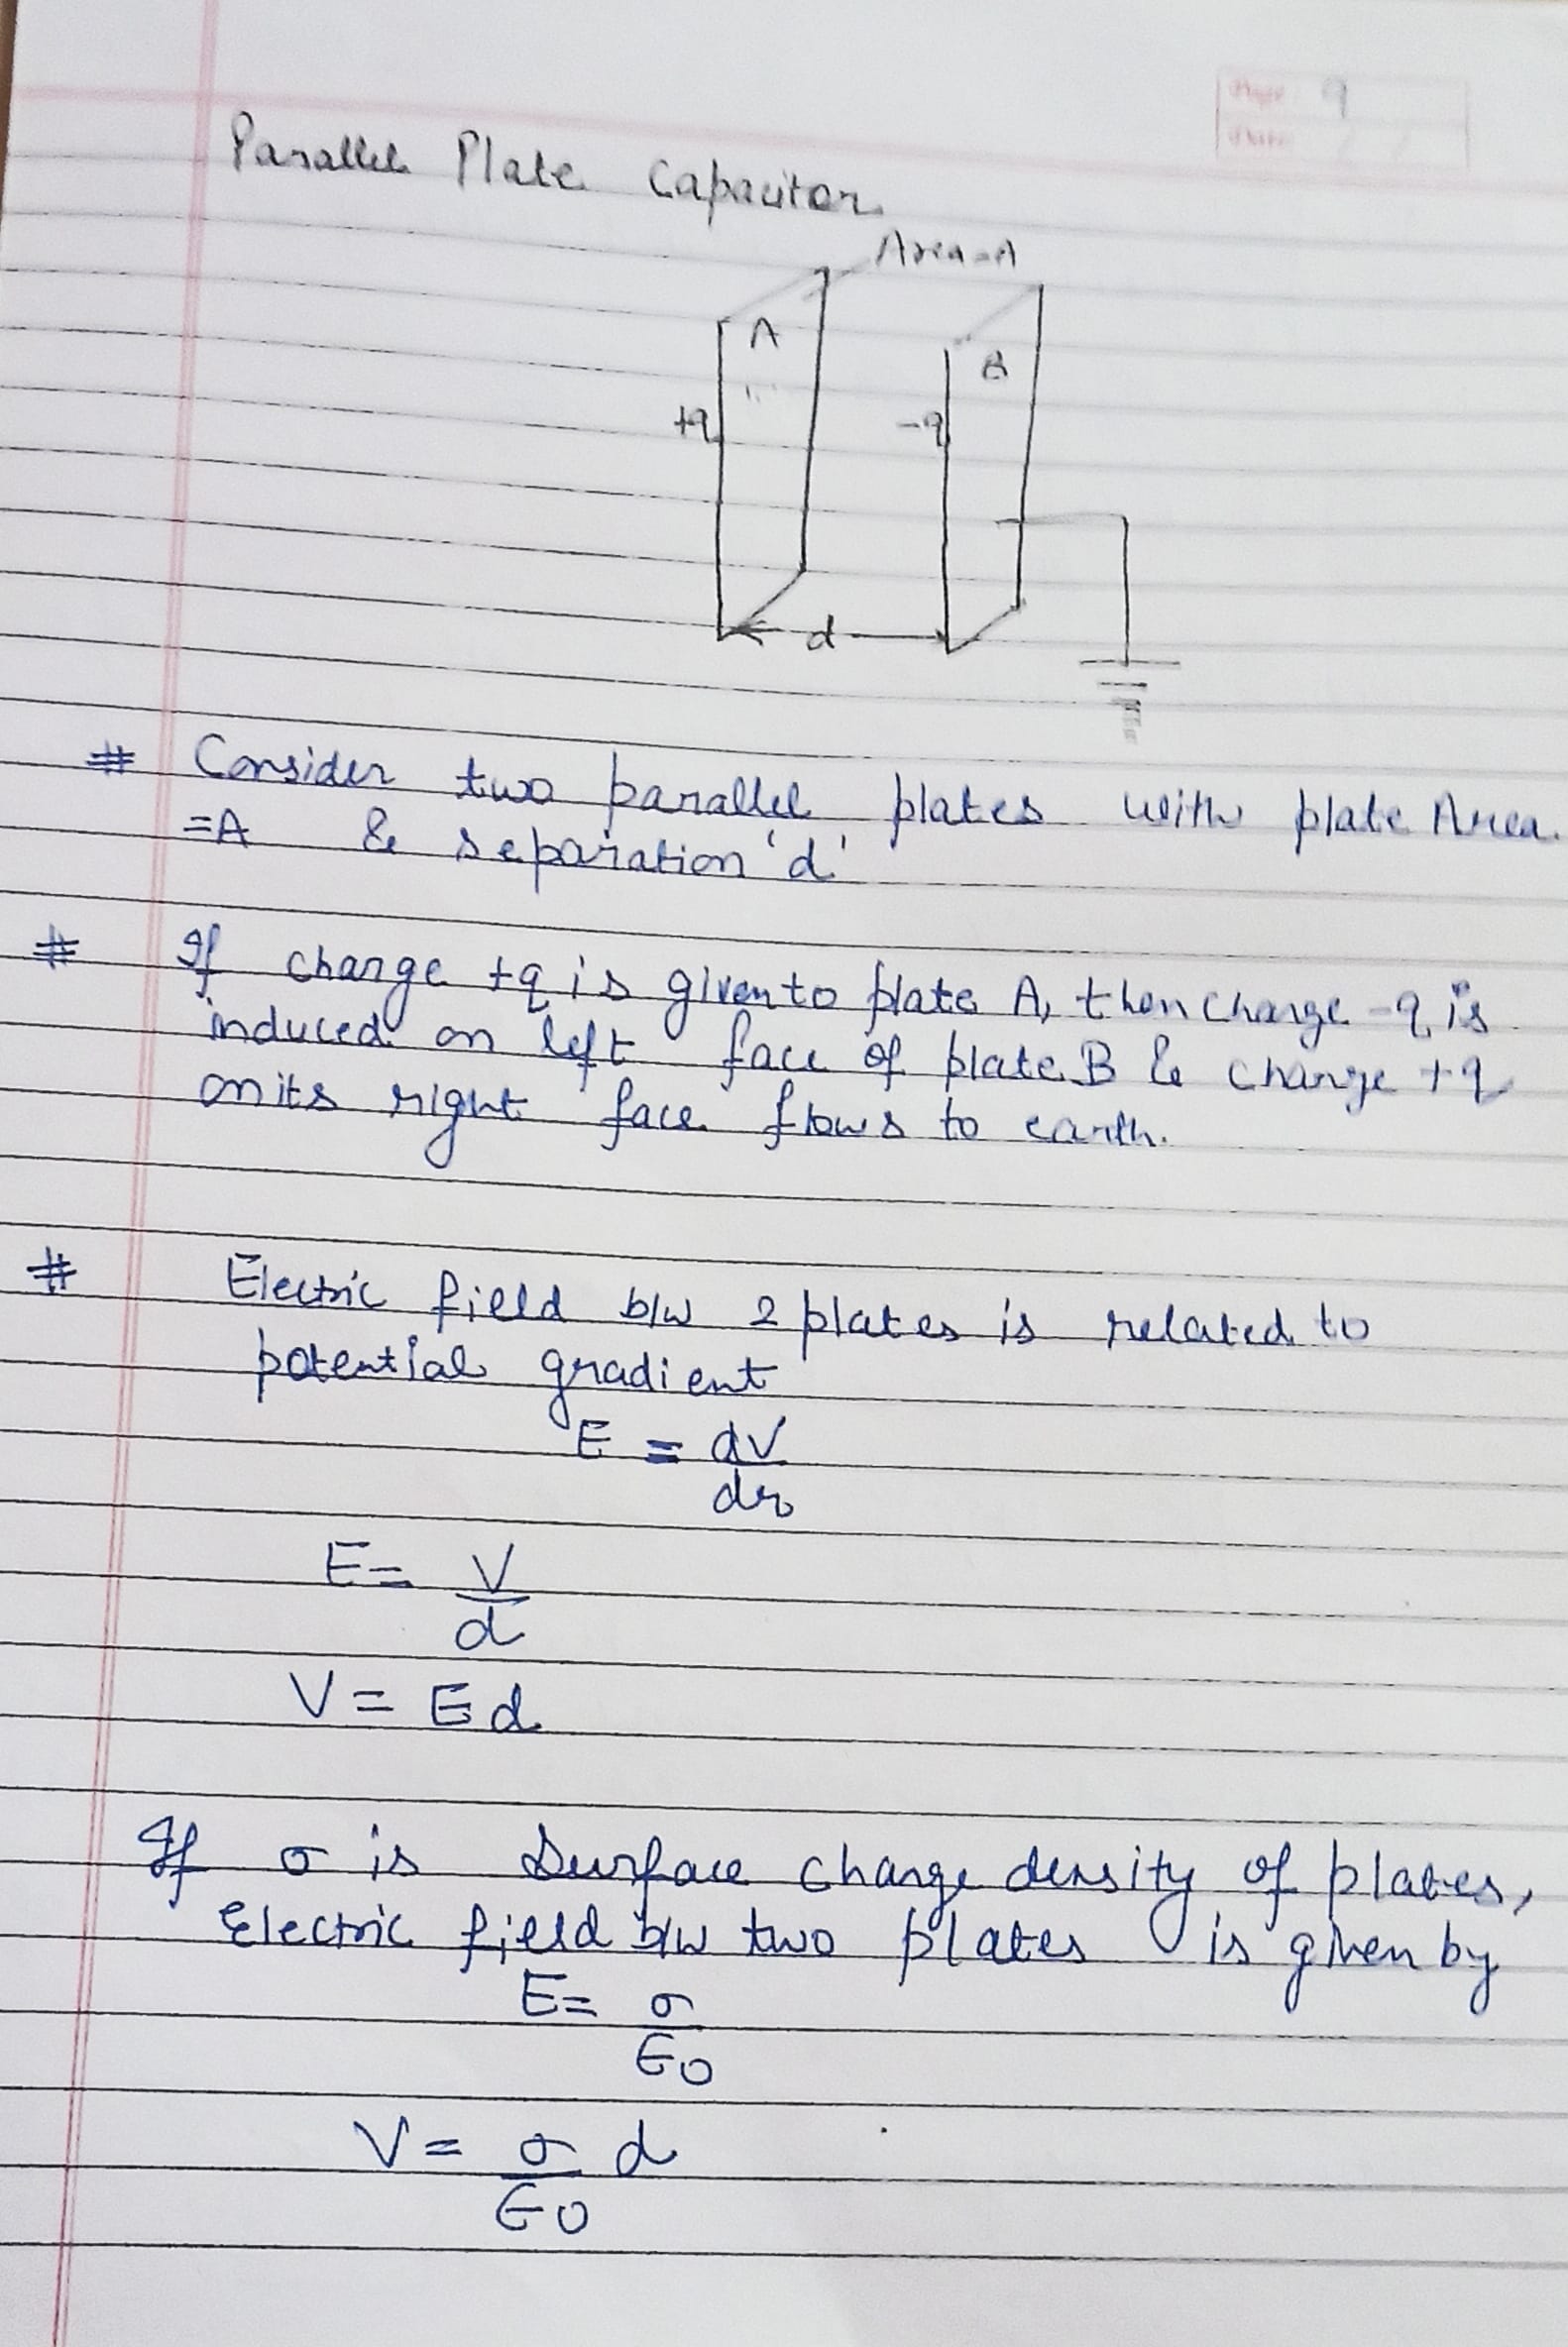 Page 9
Date
Parallel Plate Capacitor
Area=A
A
B
+q
-q
d
# Consider two parallel plates with plate Area
=A & separation 'd'
# If charge +q is given to plate A, then charge -q is
induced on left face of plate B & charge +q
on its right face flows to earth.
# Electric field b/w 2 plates is related to
potential gradient
E = dV
dr
E = V
d
V = Ed
If σ is Surface charge density of plates,
Electric field b/w two plates is given by
E = σ
ε0
V = σ d
ε0